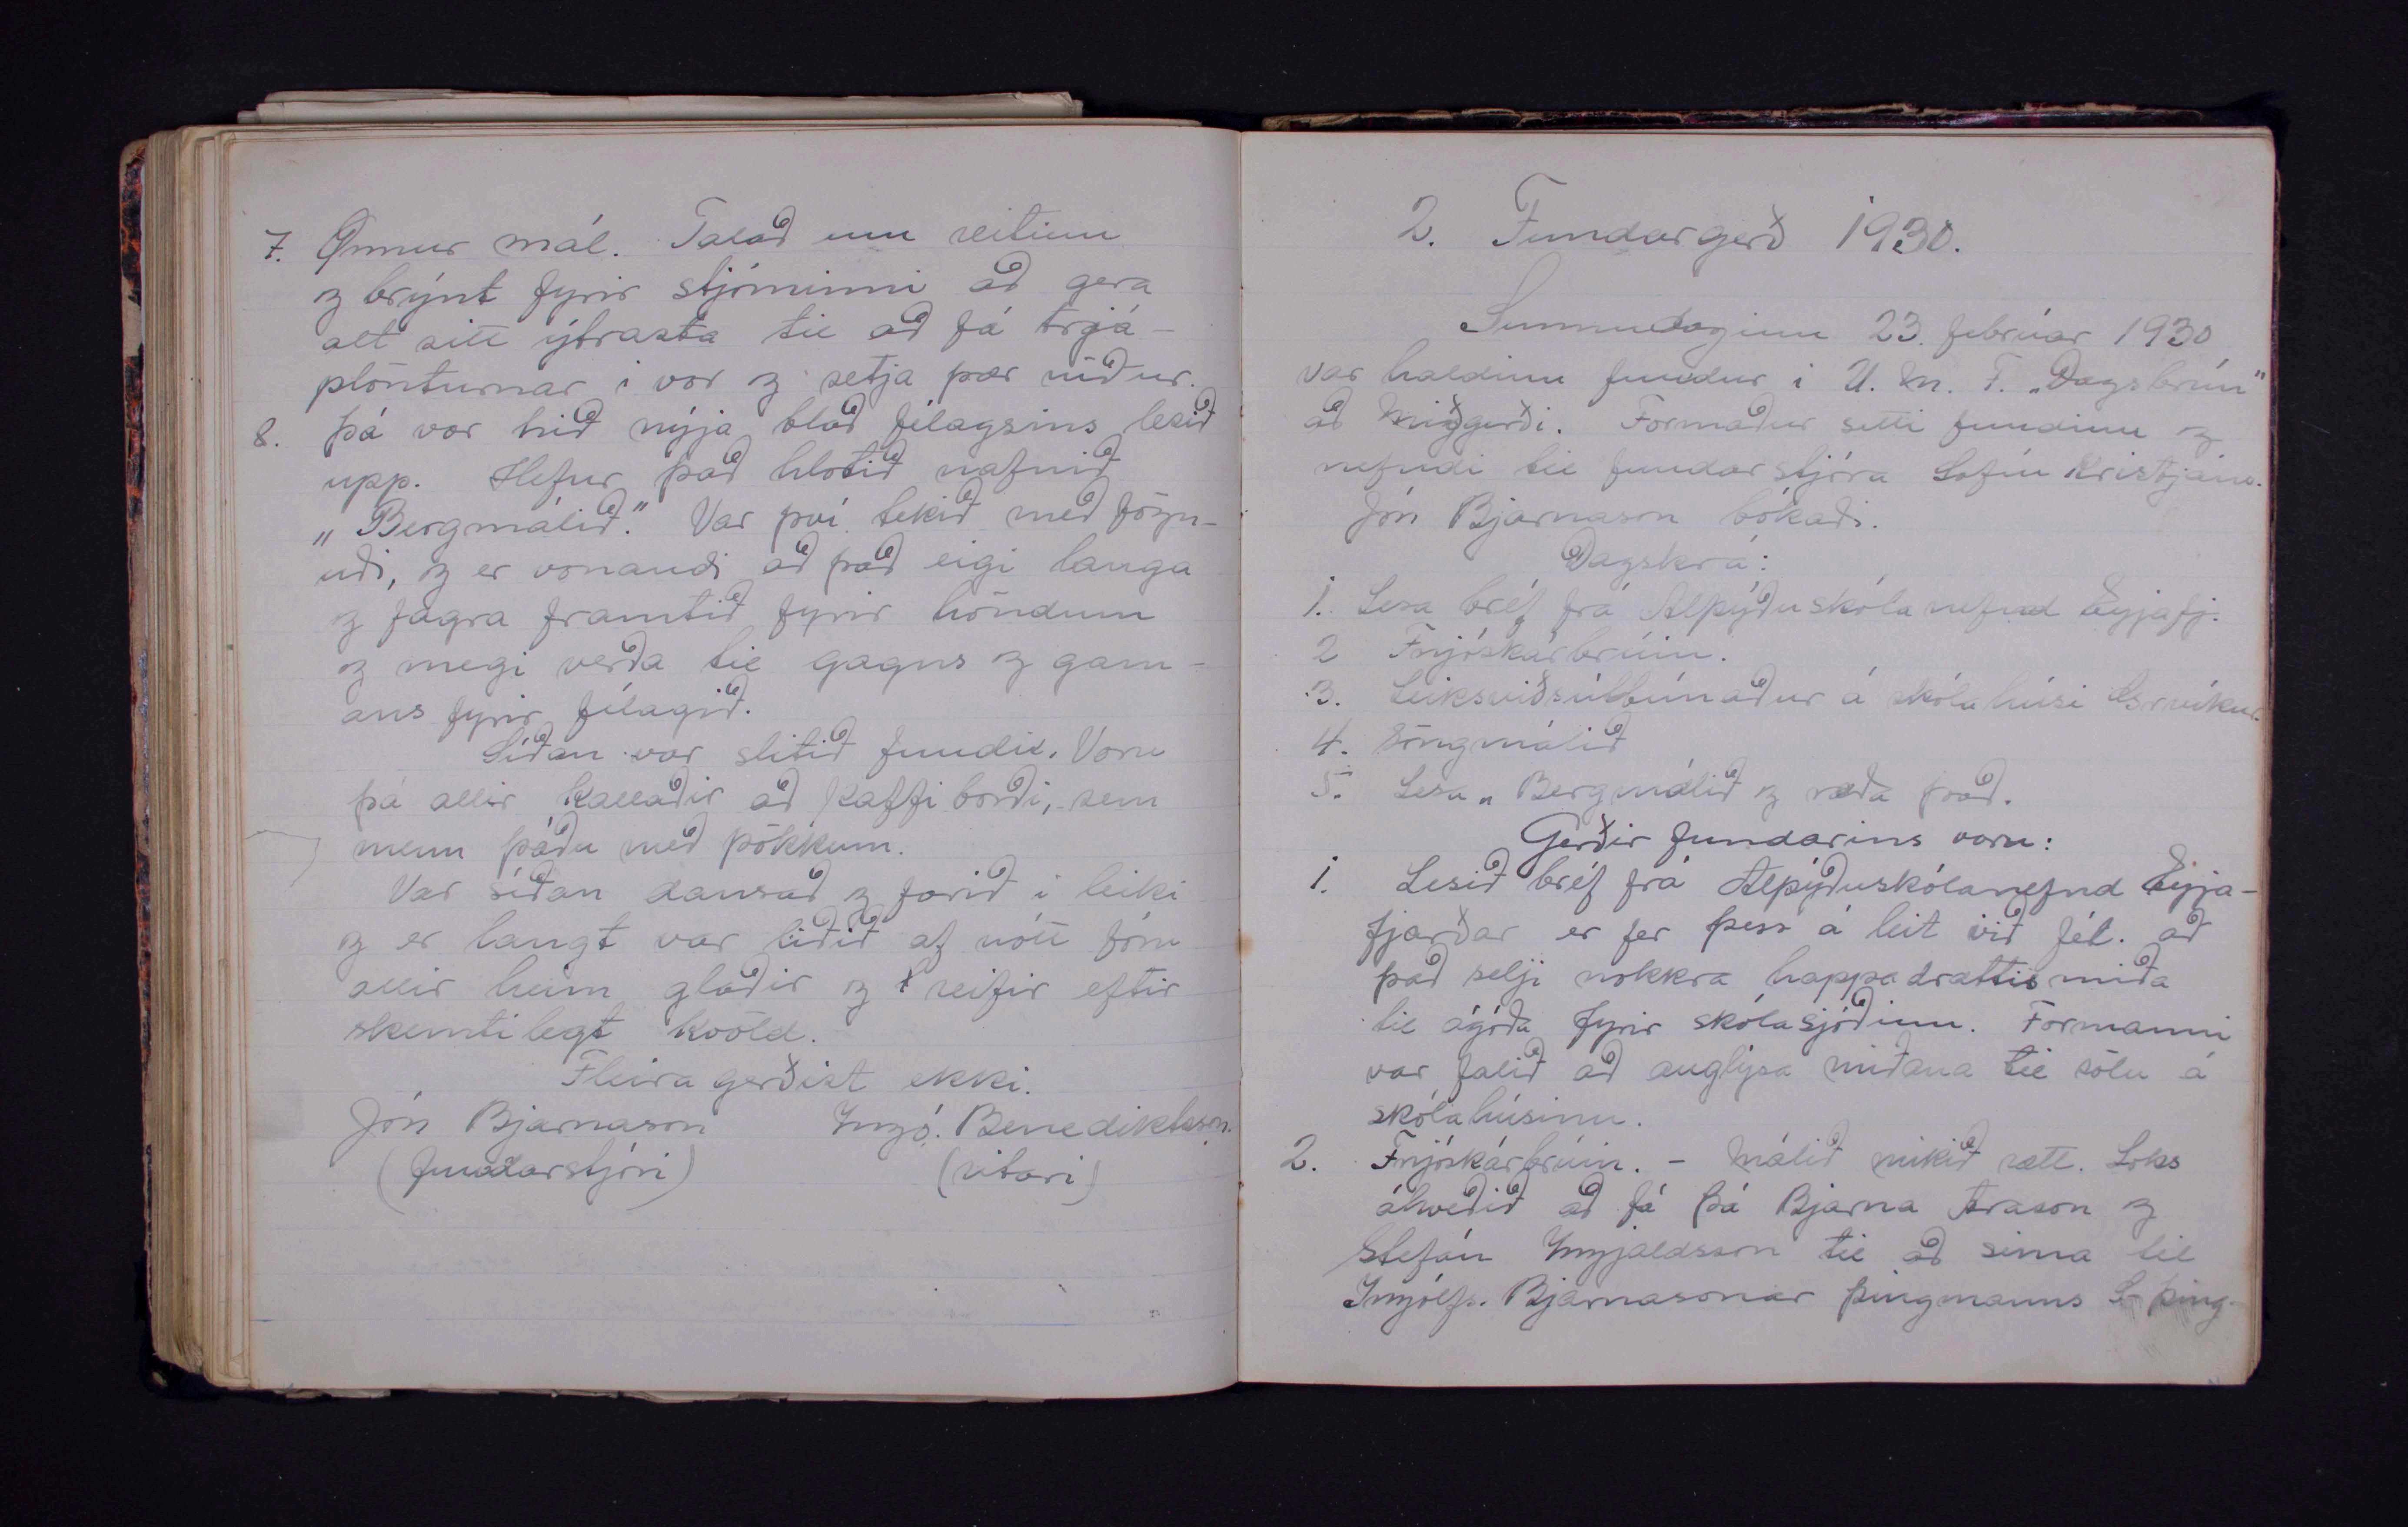 7. Önnur mál. Talað um reitinn
og brýnt fyrir stjórninni að gera
alt sitt ýtrasta til að fá trjá-
plönturnar í vor og setja þær niður.
8. Þá var hið nýja blað félagsins lesið
upp. Hefur það hlotið nafnið
„Bergmálið." Var því tekið með fögn-
uði, og er vonandi að það eigi langa
og fagra framtíð fyrir höndum
og megi verða til gagns og gam-
ans fyrir félagið.
Síðan var slitið fundi. Voru
þá allir kallaðir að kaffi borði, sem
menn þáðu með þökkum.
Var síðan dansað og farið í leiki
og er langt var liðið af nótt fóru
allir heim glaðir og reifir eftir
skemtilegt kvöld.
Fleira gerðist ekki.
Jón Bjarnason Ingó. Benediktsson.
(fundarstjóri) (ritari)
2. Fundargerð 1930.
Sunnudaginn 23. febrúar 1930
var haldinn fundur í U. M. F. „Dagsbrún"
að Miðgerði. Formaður setti fundinn og
nefndi til fundarstjóra Sofíu Kristjáns.
Jón Bjarnason bókaði.
Dagskrá:
1. Lesa bréf frá Alþýðuskólanefnd Eyjafj.
2 Fnjóskárbrúin.
3. Leiksviðsútbúnaður á skólahúsi
4. Söngmálið
5. Lesa „Bergmálið og ræða það.
Gerðir fundarins voru:
1. Lesið bréf frá Alþýðuskólanefnd Eyja-
fjarðar er fer þess á leit við fél. að
það selji nokkra happadrattis miða
til ágóða fyrir skólasjóðinn. Formanni
var falið að auglýsa miðana til sölu á
skólahúsinu.
2. Fnjóskárbrúin. - Málið mikið rætt. Loks
ákveðið að fá þá Bjarna Arason og
Stefán Ingjaldsson til að síma til
Ingólfs. Bjarnasonar þingmanns S-þing-